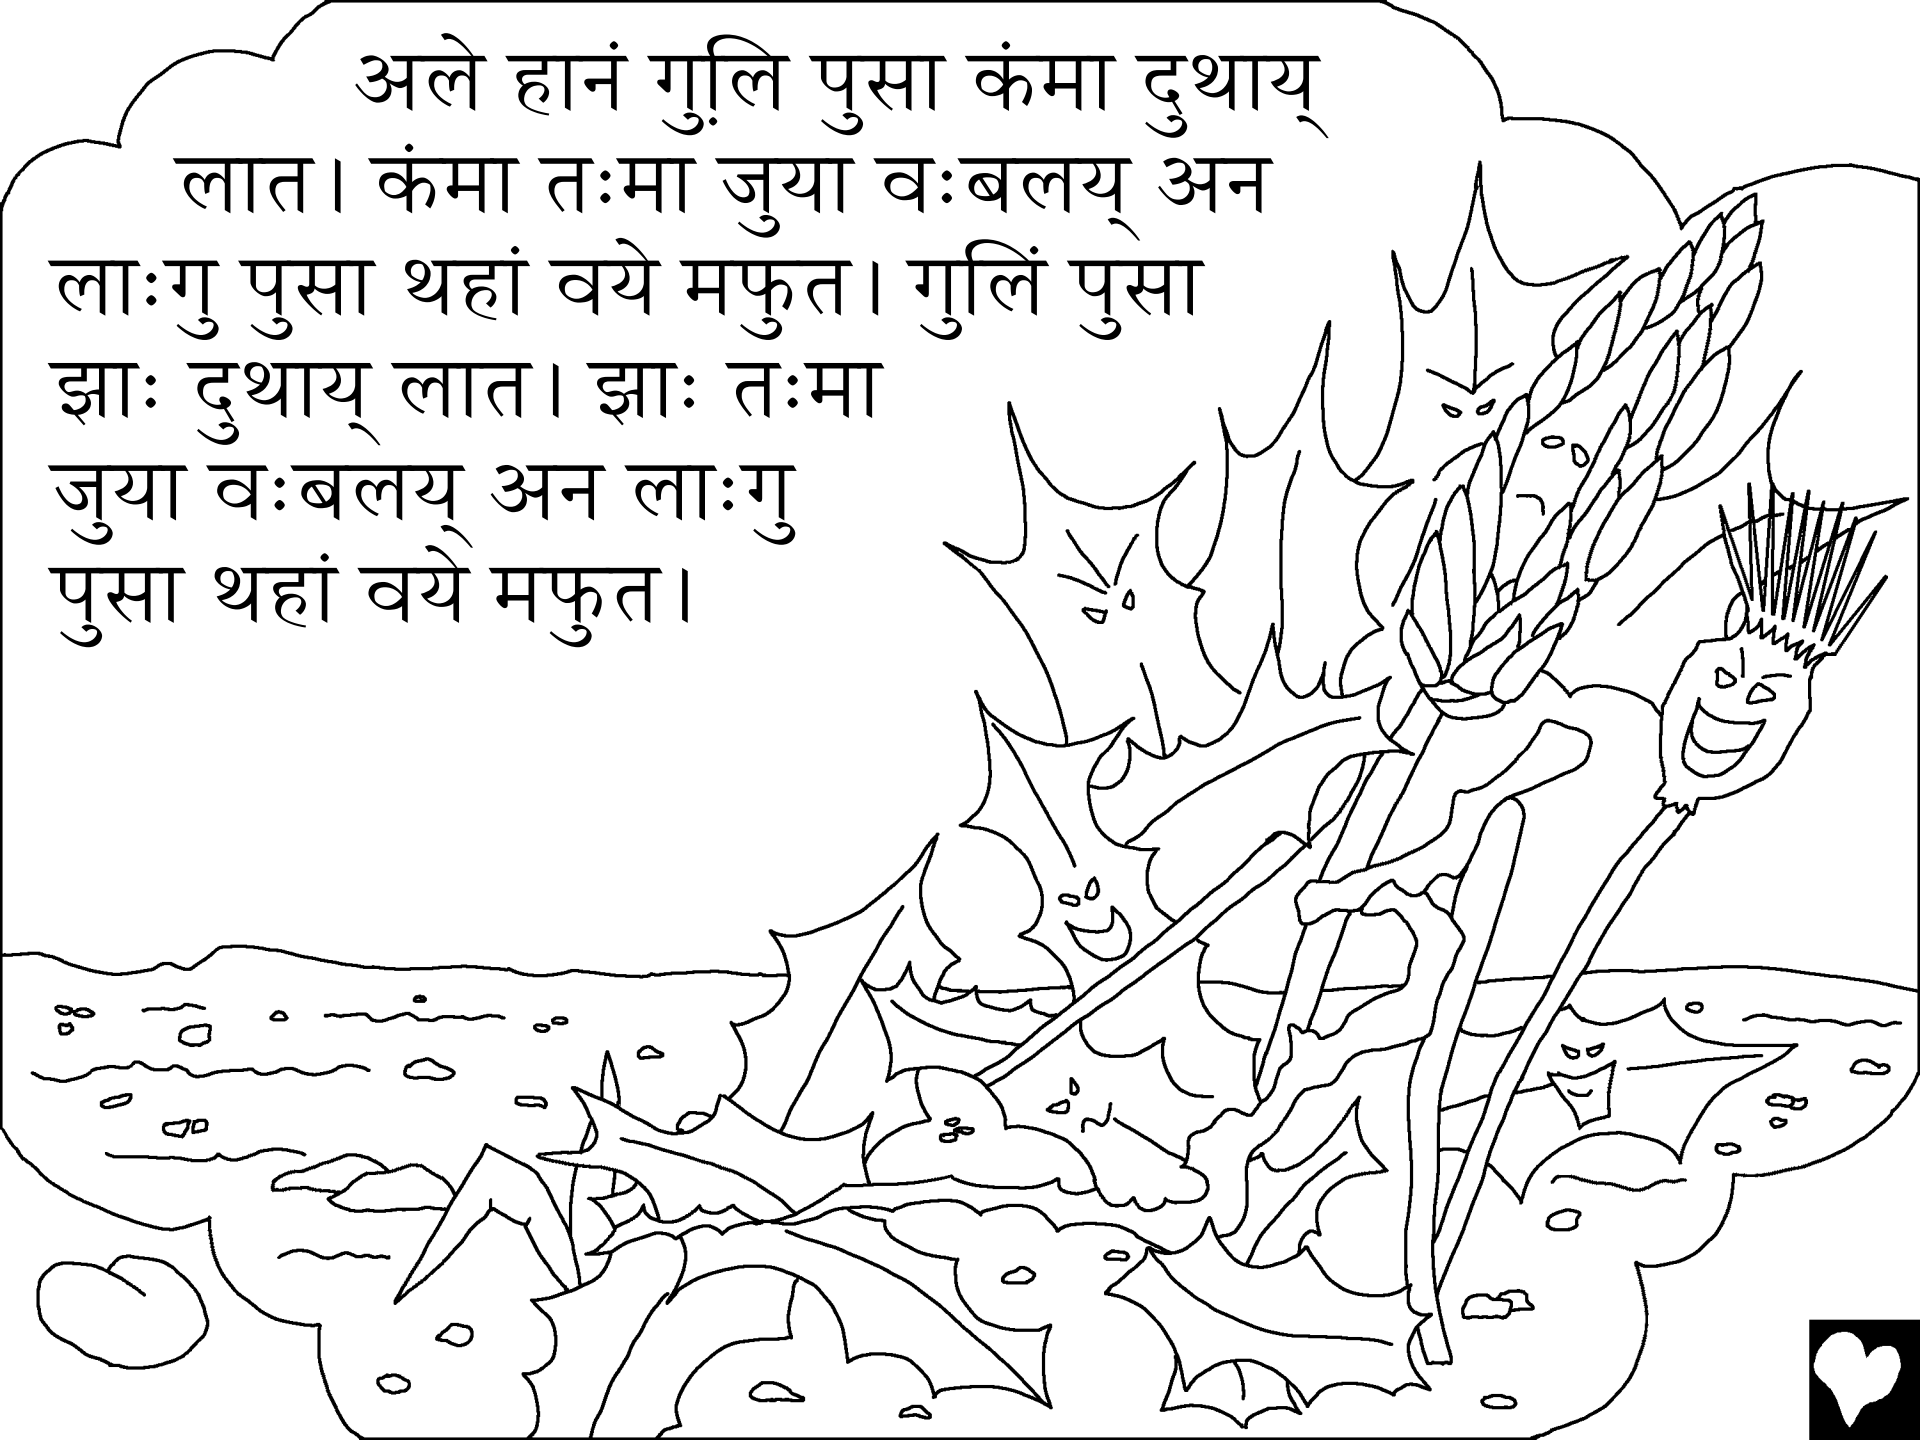 अले हानं गुल़ि पुसा कंमा दुथाय्
लात। कंमा तःमा जुया वःबलय् अन
लाःगु पुसा थहां वये मफुत। गुलिं पुसा
झाः दुथाय् लात। झाः तःमा
जुया वःबलय् अन लाःगु
पुसा थहां वये मफुत।